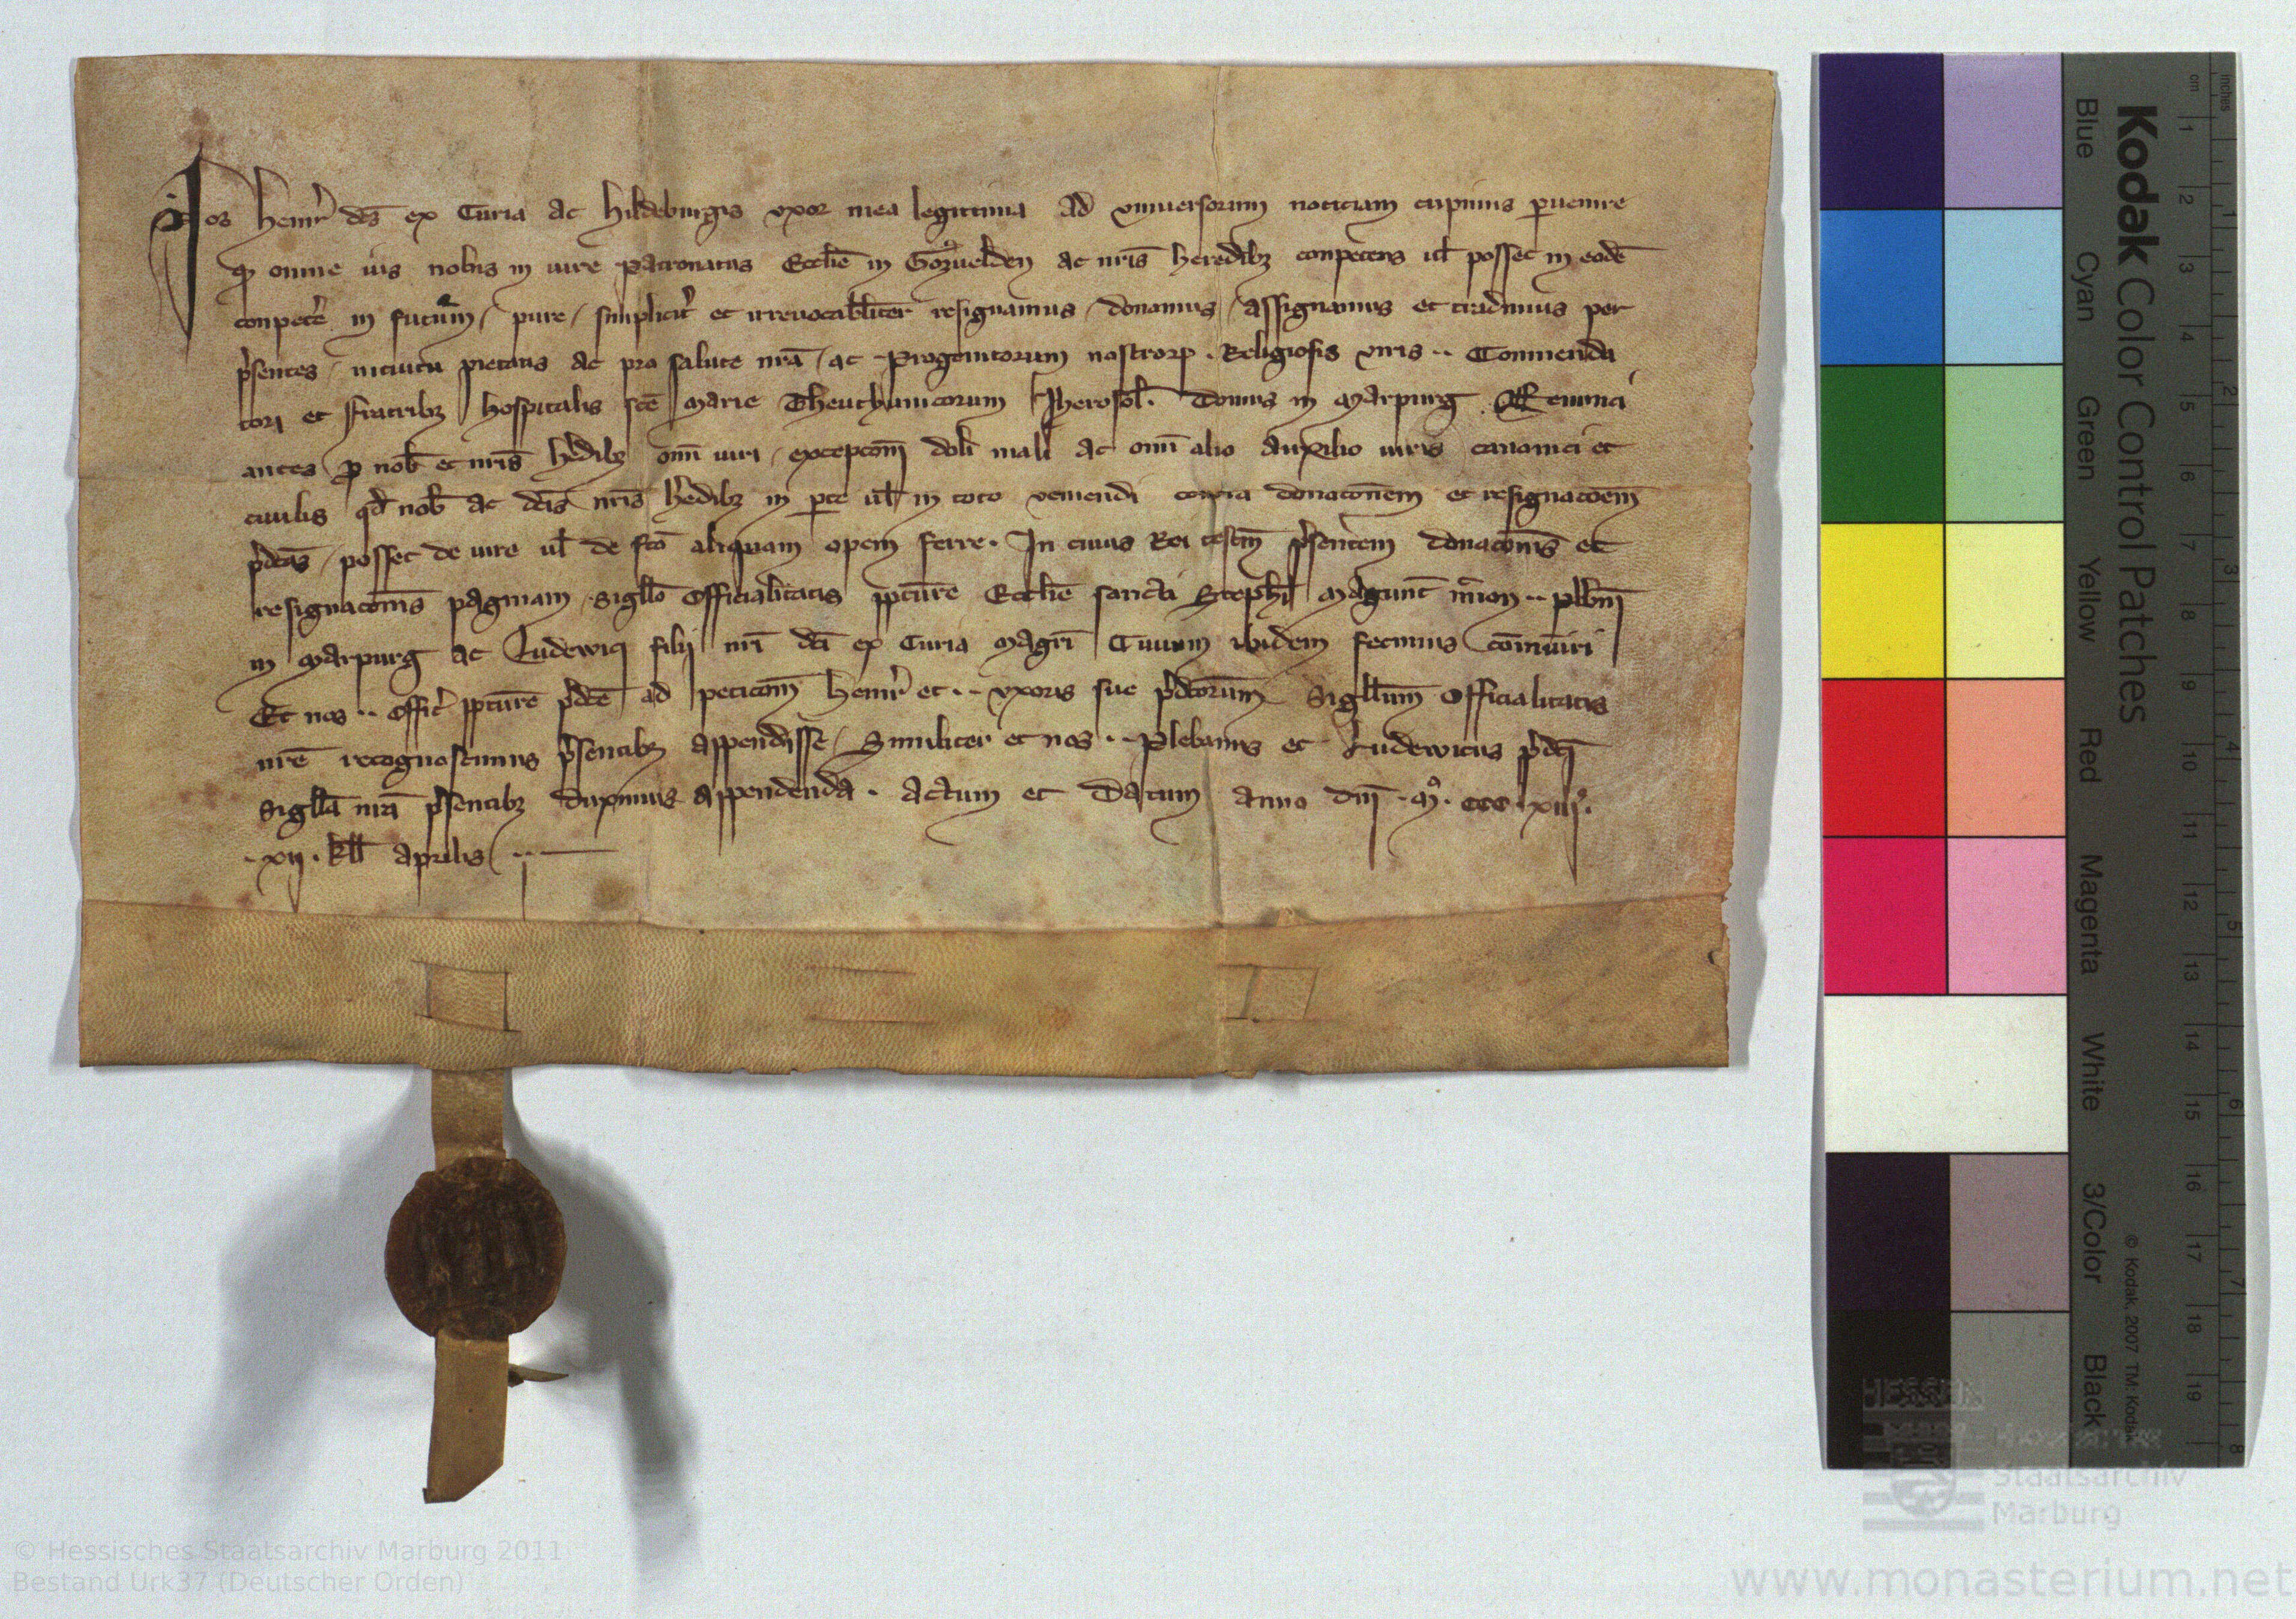 Nos Henr̄ dc̄s ex Curia ac Hildeburgis vxor mea legittima ad vniuersorum noticiam cupimus ꝑuenire
ꝙ omne ius nobis in iure patronatus Eccl̄ie in Gozuelden ac nr̄is heredibꝫ conpetens ul̄ posset in eodē
conpet̄e in futurū / pure / simplicit̄ et irreuocabl̄iter resignamus / donamus / assignamus et tradimus per
p̄sentes / intuitu pietatis ac pro salute nr̄a / ac progenitorum nostroꝝ . Religiosis viris ·· Commenda
tori et fratribꝫ Hospitalis sc̄e Marie Theuthunicorum Jherosol̄ . Domus in Marpurg . Renunci
antes ꝓ nob̄ et nr̄is h̄edibꝫ om̄i iuri / exceptōni doli mali ac om̄i alio auxilio iuris canonici et
ciuilis qd̄ nob̄ ac dc̄is nr̄is h̄edibꝫ in ꝑte ul̄ in toto veniendi contra donatōnem et resignatōem
p̄dc̄as / posset de iure ul̄ de fc̄o aliquam opem ferre . In cuius Rei testīm p̄sentem donatōnis et
resignatōnis paginam sigillo Officialitatis p̄pture Eccl̄ie sancti Steph̄i Magunt̄ ·· plebāni
in Marpurg ac Ludewici filij nr̄i dc̄i ex Curia magr̄i Ciuium ibidem fecimus cōmuniri
Et nos ·· offic̄ p̄pture p̄dc̄e ad petitōem Henr̄ et ·· vxoris sue p̄dc̄orum Sigillum Officialitatis
nr̄e recognoscimus p̄sentibꝫ appendisse / Similiter et nos ·· Plebanus et Ludewicus p̄dc̄i
Sigilla nr̄a p̄sentibꝫ duximus appendenda . Actum et Datum anno dn̄i · Mͦ · CCC · xiiijͦ .
· xij · kl̄ Aprilis ··
Kodak Color Control Patches
Blue Cyan Green Yellow Red Magenta White 3/Color Black
© Kodak, 2007 TM: Kodak
cm 1 2 3 4 5 6 7 8 9 10 11 12 13 14 15 16 17 18 19
inches 1 2 3 4 5 6 7 8
HESSEN
Hessisches
Staatsarchiv
Marburg
© Hessisches Staatsarchiv Marburg 2011
Bestand Urk37 (Deutscher Orden)
www.monasterium.net